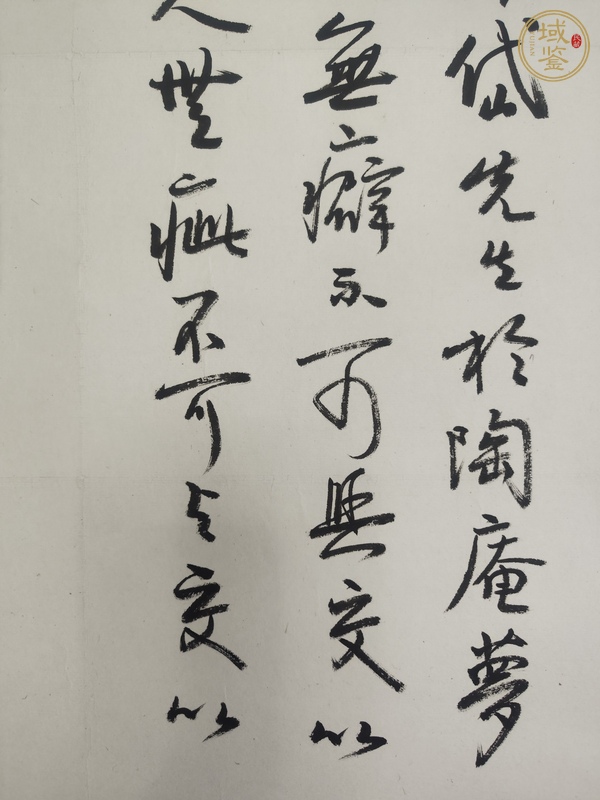 岱先生於陶庵夢
無癖不可與交以
人無疵不可与交以
域鉴